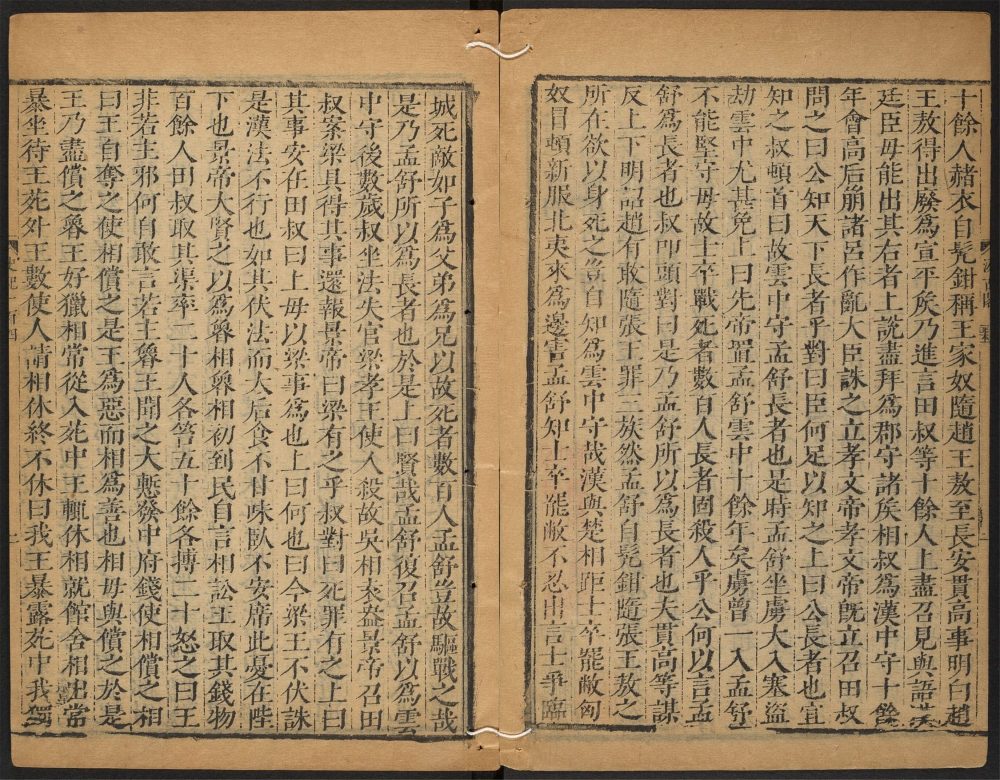 十餘人赭衣自髡鉗稱王家奴隨趙王敖至長安貫高事明白趙
王敖得出廢爲宣平矦乃進言田叔等十餘人上盡召見與語漢
廷臣毋能出其右者上說盡拜爲郡守諸矦相叔爲漢中守十餘
年會高后崩諸呂作亂大臣誅之立孝文帝孝文帝旣立召田叔
問之曰公知天下長者乎對曰臣何足以知之上曰公長者也宜
知之叔頓首曰故雲中守孟舒長者也是時孟舒坐虜大入塞盜
劫雲中尤甚免上曰先帝置孟舒雲中十餘年矣虜曾一入孟舒
不能堅守毋故士卒戰死者數百人長者固殺人乎公何以言孟
舒爲長者也叔叩頭對曰是乃孟舒所以爲長者也夫貫高等謀
反上下明詔趙有敢隨張王罪三族然孟舒自髡鉗隨張王敖之
所在欲以身死之豈自知爲雲中守哉漢與楚相距士卒罷敝匈
奴冒頓新服北夷來爲邊害孟舒知士卒罷敝不忍出言士爭臨
城死敵如子爲父弟爲兄以故死者數百人孟舒豈故驅戰之哉
是乃孟舒所以爲長者也於是上曰賢哉孟舒復召孟舒以爲雲
中守後數歲叔坐法失官梁孝王使人殺故吳相袁盎景帝召田
叔案梁具得其事還報景帝曰梁有之乎叔對曰死罪有之上曰
其事安在田叔曰上毋以梁事爲也上曰何也曰今梁王不伏誅
是漢法不行也如其伏法而太后食不甘味臥不安席此憂在陛
下也景帝大賢之以爲魯相魯相初到民自言相訟王取其錢物
百餘人田叔取其渠率二十人各笞五十餘各搏二十怒之曰王
非若主邪何自敢言若主魯王聞之大慙發中府錢使相償之相
曰王自奪之使相償之是王爲惡而相爲善也相毋與償之於是
王乃盡償之魯王好獵相常從入苑中王輒休相就館舍相出常
暴坐待王苑外王數使人請相休終不休曰我王暴露苑中我獨